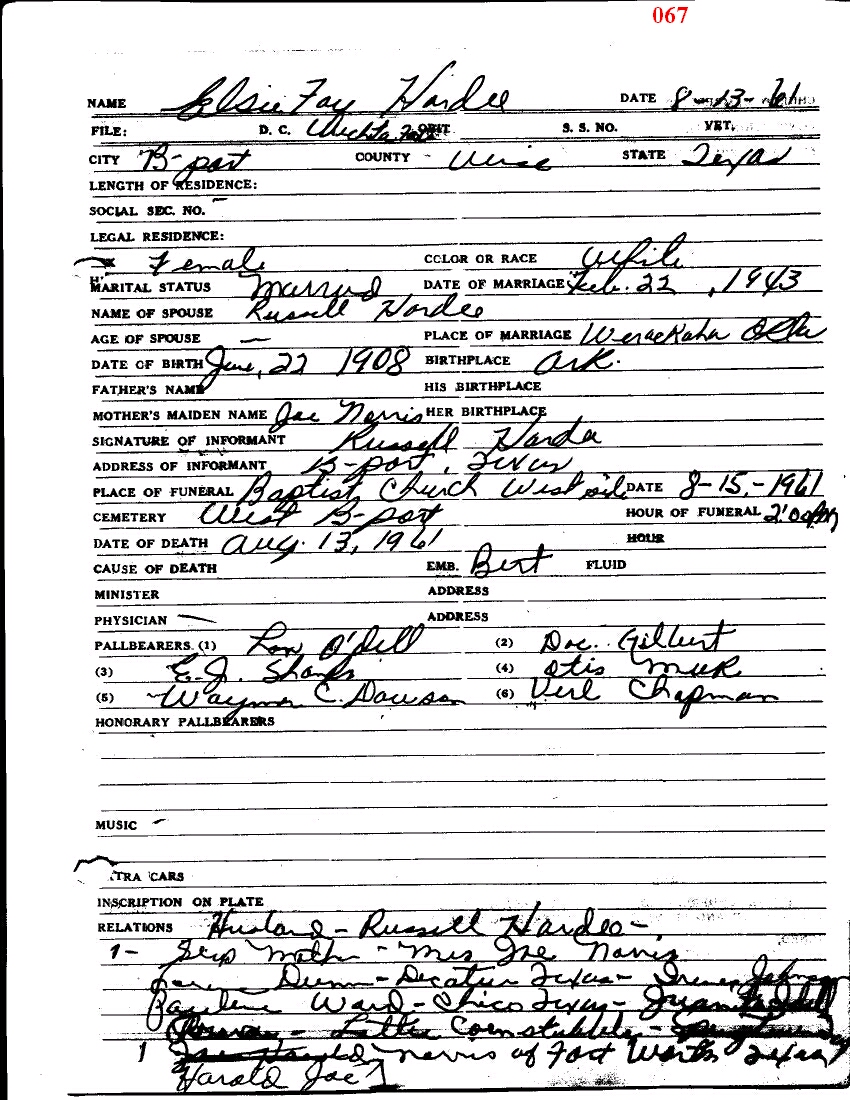 067
NAME Elsie Fay Hardee DATE 8-13-61
FILE: D. C. Wichita Falls S. S. NO. VET.
CITY B-port COUNTY - Wise STATE Texas
LENGTH OF RESIDENCE:
SOCIAL SEC. NO. -
LEGAL RESIDENCE:
Female COLOR OR RACE White
MARITAL STATUS Married DATE OF MARRIAGE Feb. 22, 1943
NAME OF SPOUSE Russell Hardee
AGE OF SPOUSE — PLACE OF MARRIAGE Okla
DATE OF BIRTH June, 22 1908 BIRTHPLACE Ark.
FATHER'S NAME HIS BIRTHPLACE
MOTHER'S MAIDEN NAME Joe Norris HER BIRTHPLACE
SIGNATURE OF INFORMANT Russell Harda
ADDRESS OF INFORMANT B-port, Texas
PLACE OF FUNERAL Baptist Church West side DATE 8-15,-1961
CEMETERY West B-port HOUR OF FUNERAL 2:00 PM
DATE OF DEATH Aug. 13, 1961 HOUR
CAUSE OF DEATH EMB. Bert FLUID
MINISTER ADDRESS
PHYSICIAN — ADDRESS
PALLBEARERS. (1) Lon O'dell (2) Doc. Gilbert
(3) E. J. (4) Otis
(5) C. Dawson (6) Verl Chapman
HONORARY PALLBEARERS
MUSIC -
TRA CARS
INSCRIPTION ON PLATE
RELATIONS Husband - Russell Hardee -
1- Step Mother - Mrs Joe Norris
Dunn - Decatur Texas - Johnson
Pauline Ward - Chico Texas -
-
1 Norris of Fort Worth Texas
Harold Joe